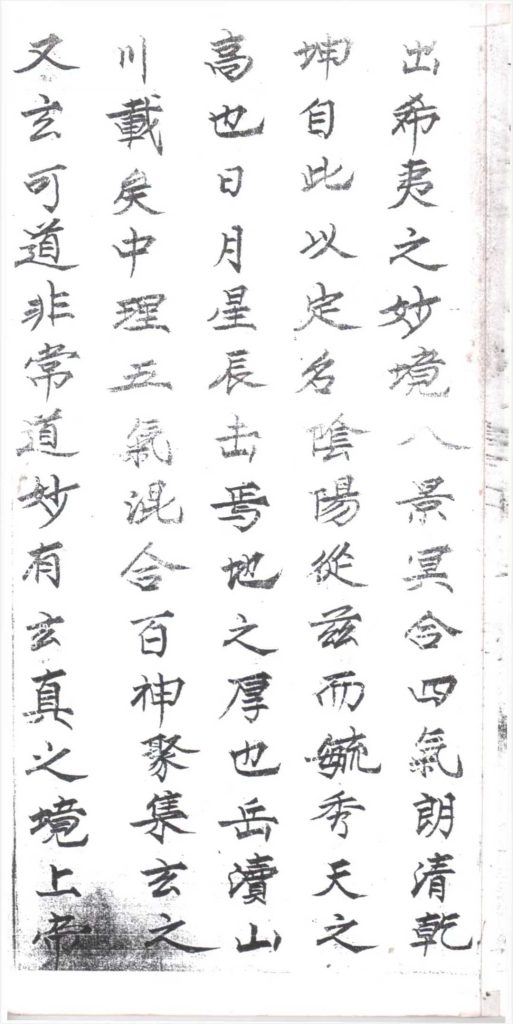 出希夷之妙境八景冥合四氣朗清乾
坤自此以定名陰陽從兹而毓秀天之
高也日月星辰击焉地之厚也岳瀆山
川載矣中理五氣混合百神聚集玄之
又玄可道非常道妙有玄真之境上帝